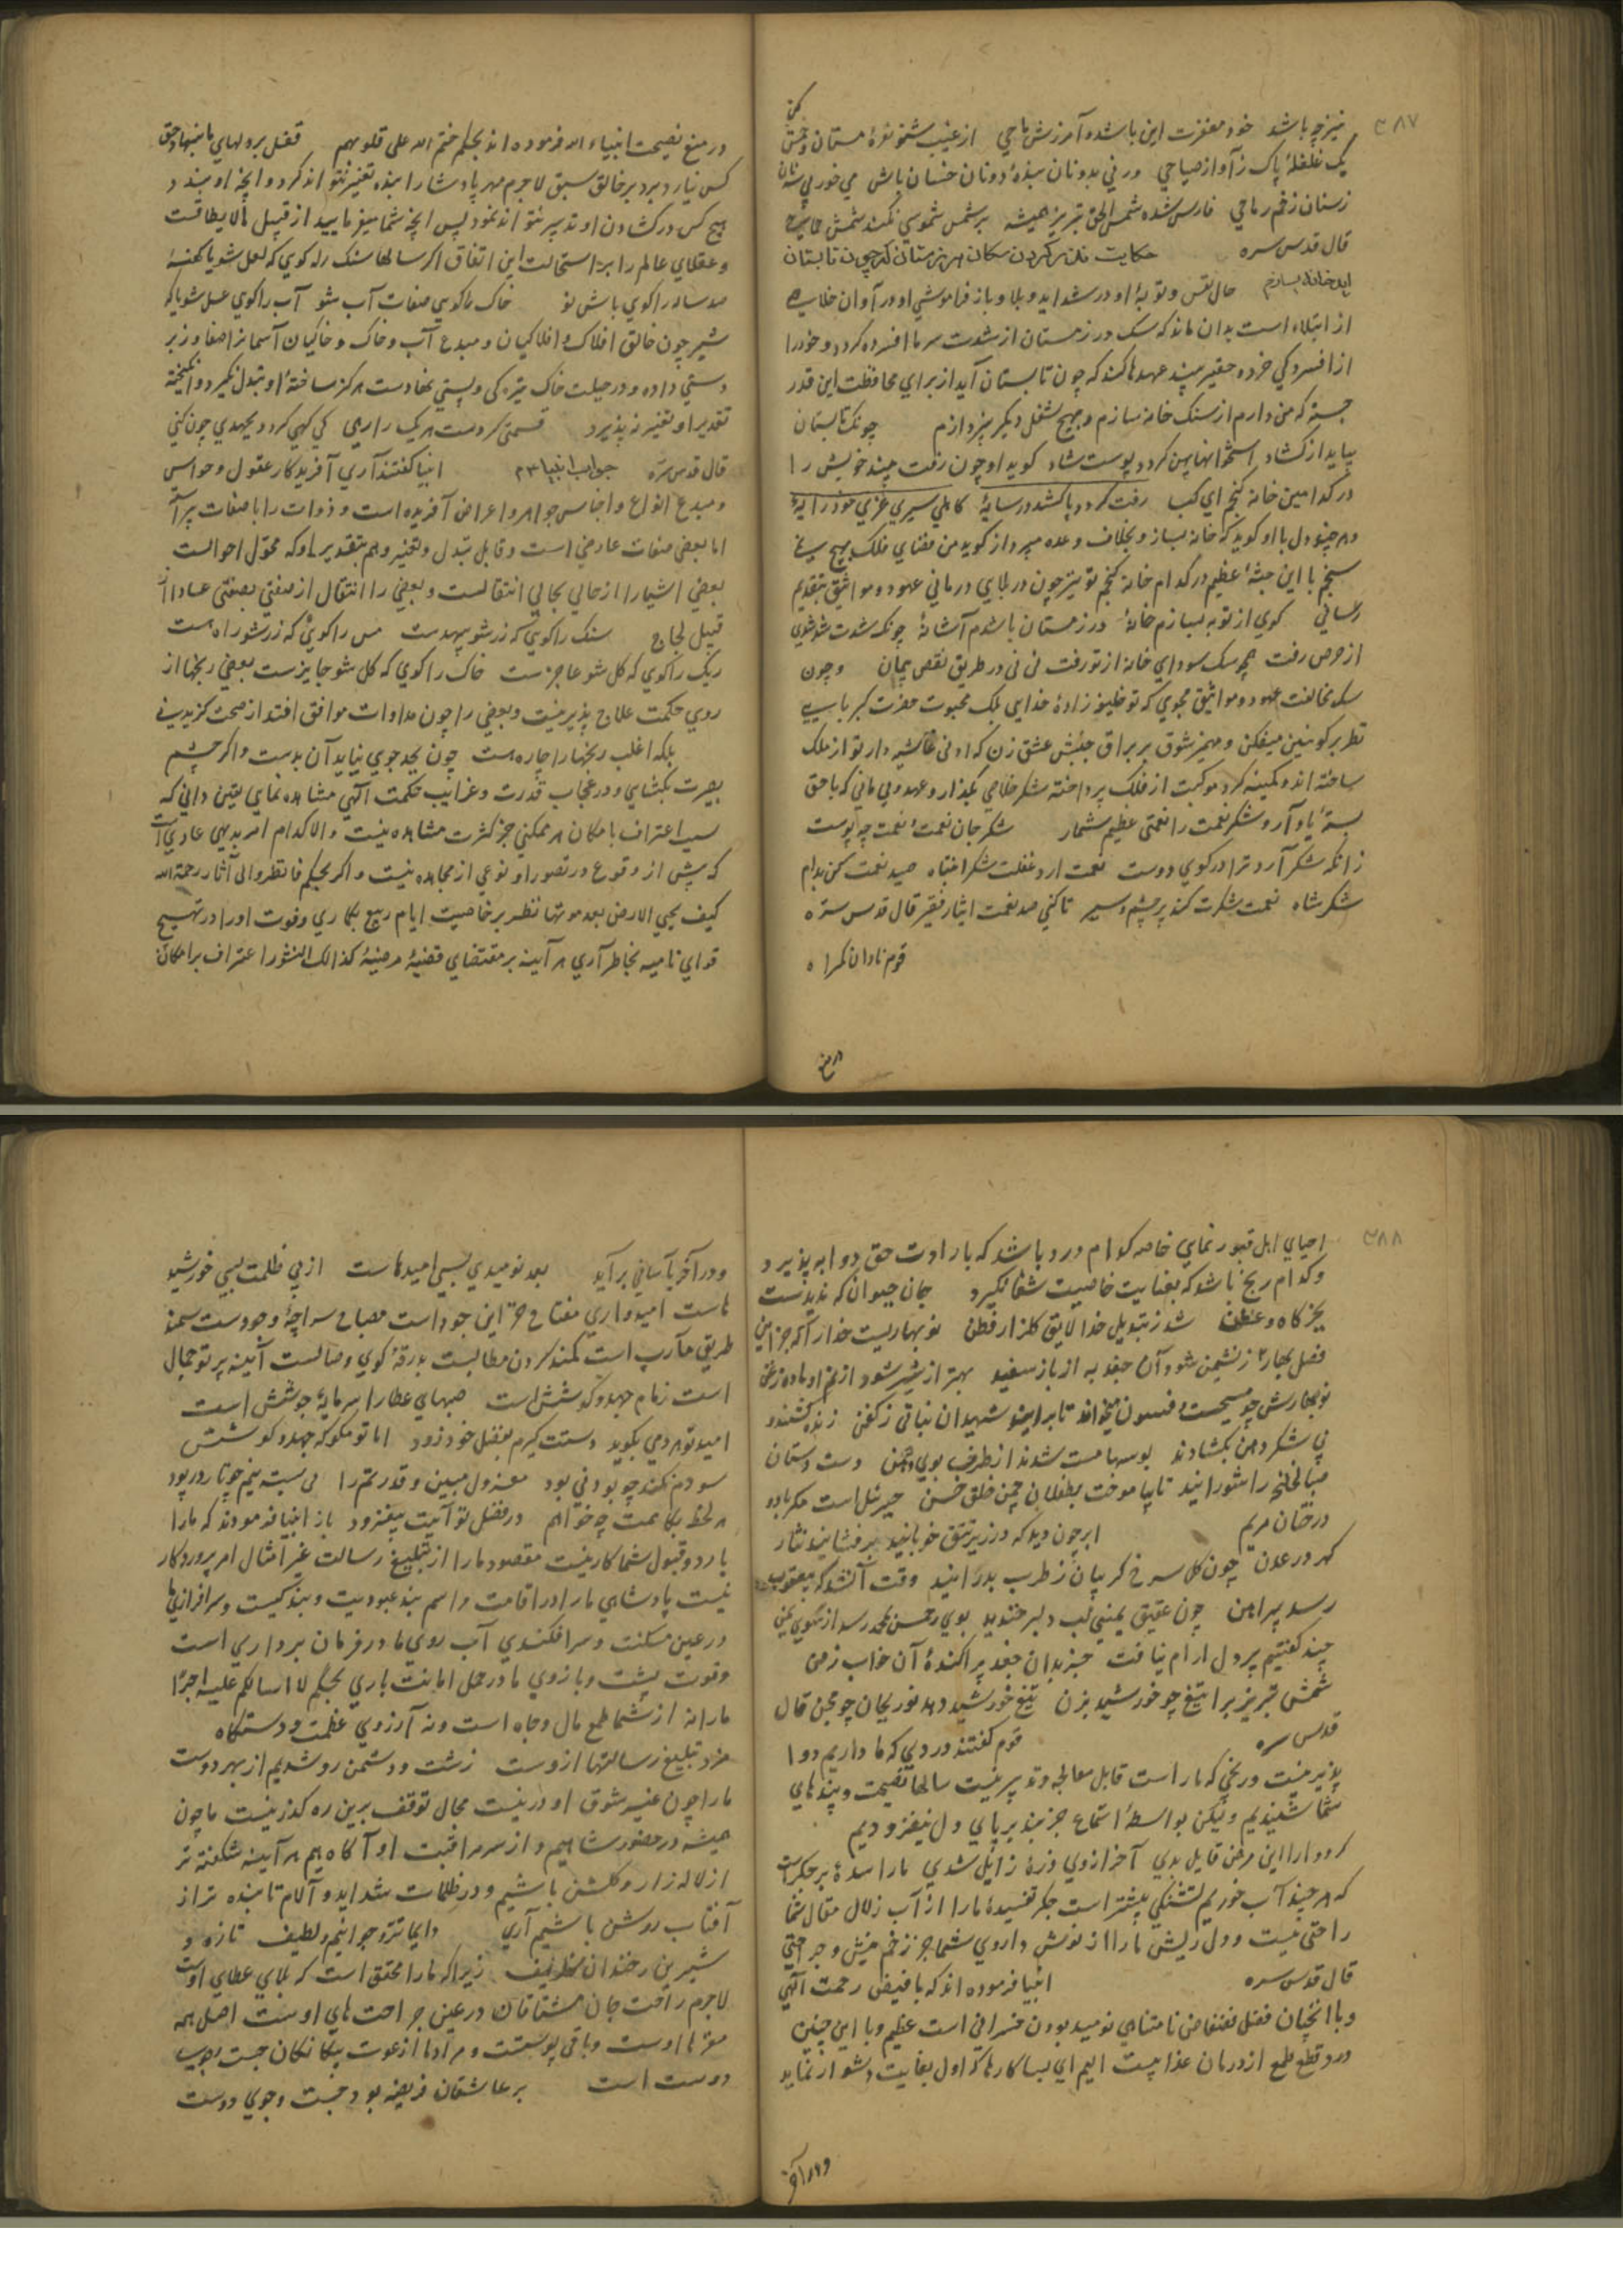 ۳۸۷
نیز چه باشد خود مغفرت این باشد و آمرزش ماحی از غیب شنو نعرهٔ مستان و خمش کن
یک غلغلهٔ پاک ز آواز صیاحی ور نی بدو نان بندهٔ دونان خسان باش می خور پی سه نان
ز سنان زخم رماحی فارس شده شمس الحق تبریز همیشه بر شمس شموسی نکند شمس جماحی
قال قدس سره حکایت نذر کردن سگان هر زمستان که چون تابستان
آید خانه بسازیم حال نفس و توبهٔ او در شداید و بلا و باز فراموشی او در آوان خلاص
از ابتلاء است بدان ماند که سک در زمستان از شدت سرما افسرده کردد و خود را
از افسردکی خرد و حقیر بیند عهدها کند که چون تابستان آید از برای محافظت این قدر
جسته که من دارم از سنک خانه سازم و بهیچ شغل دیکر نپردازم چونک تابستان
بیاید از کشاد استخوانها پهن کردد و پوست شاد کوید او چون زفت بیند خویش را
در کدامین خانه کنجم ای کیا زفت کردد پا کشد در سایهٔ کاهلی سیری غری خود رایهٔ
و هر چند دل با او کوید که خانه بساز و بخلاف وعده مپرداز کوید من
سنجم با این جثهٔ عظیم در کدام خانه کنجم تو نیز چون در بلایی درمانی عهود و مواثیق بتقدیم
رسانی کوی از توبه بسازم خانهٔ در زمستان باشدم آشانهٔ چونکه شدت شد
از حرص رفت همچو سک سودای خانه از تو رفت نی نی در طریق نقص پیمان و چون
سک مخالفت عهود و مواثیق مجوی که تو خلیفه زادهٔ خدایی بلک محبوب حضرت کبریایی
نظر بر کونین میفکن و مهمیز شوق بر براق جنبش عشق زن که ادنی غاشیه دار تو از ملک
ساخته اند و کمینه کرد موکبت از فلک پرداخته شکر خلاصی بکذار و عهد و پیمانی که با حق
بستهٔ یاد آر و شکر نعمت را نعمتی عظیم شمار شکر جان نعمت و نعمت چو پوست
زانکه شکر آرد ترا در کوی دوست نعمت آرد غفلت شکر انتباه صید نعمت کن بدام
شکر شاه نعمت شکرت کند پر چشم و سیر تا کنی صد نعمت ایثار فقیر قال قدس سره
قوم نادان کمراه
در منع نصیحت انبیاء الله فرموده اند بحکم ختم الله علی قلوبهم قفل بر دلهای ما بنهاد حق
کس نیارد برد بر خالق سبق لاجرم مهر پادشا را بنده تغییر نتواند کرد و انچه او ببندد
هیچ کس در کشادن او تدبیر نتواند نمود پس انچه شما میفرمایید از قبیل مالایطاقست
و عقلای عالم را بر استحالت این اتفاق اکر سالها سنک را کوی که لعل شو یا کهنهٔ
صد ساله را کوی باش نو خاک را کویی صفات آب شو آب را کوی عسل شو یا که
شیر چون خالق افلاک و افلاکیان و مبدع آب و خاک و خاکیان آسمان را صفا و زبر
دستی داده و در جبلت خاک تیره کی و پستی نهادست هرکز ساختهٔ او تبدل نکیرد و انکیختهٔ
تقدیر او تغییر نپذیرد قسمتی کردست هر یک را رهی کی کهی کردد بجهدی چون کهی
قال قدس سره جواب انبیا انبیا کفتند آری آفریدکار عقول و حواس
و مبدع انواع و اجناس جواهر و اعراض آفریده است و ذوات را با صفات
اما بعضی صفات عارضی است و قابل تبدل و تغییر و هم بتقدیر او که محول احوالست
بعضی اشیا را از حالی بحالی انتقالست و بعضی را انتقال از صفتی بصفتی
قبیل لجاج سنک را کوی که زر شو بیهدست مس را کویی که زر شو راه هست
ریک را کوی که کل شو عاجزست خاک را کوی که کل شو جایزست بعضی رنجها از
روی حکمت علاج پذیر نیست و بعضی را چون مداوات موافق افتد از صحت کزیر نی
بلکه اغلب رنجها را چاره هست چون بجد جوی بیاید آن بدست و اکر چشم
بصیرت بکشای و در عجایب قدرت و غرایب حکمت الهی مشاهده نمای یقین دانی که
سبب اعتراف بامکان هر ممکنی جز کثرت مشاهده نیست و الا کدام امر بدیهی عادی است
که پیش از وقوع در تصور او نوعی از مجاهده نیست و اکر بحکم فانظروا الی آثار رحمة الله
کیف یحیی الارض بعد موتها نظر بر خاصیت ایام ربیع بکاری و قوت او را در تهییج
قوای نامیه بخاطر آری هر آینه بر مقتضای قضیهٔ مرضیهٔ کذالک النشور اعتراف بر امکان
۳۸۸
احیای اهل قبور نمایی خاصه کدام درد باشد که بارادت حق دوا نپذیرد
و کدام رنج باشد که بعنایت خاصیت شفا نکیرد جان حیوان که ندیدست
بجز کاه و عطن شد ز تبدیل خدا لایق کلزار فطن نو بهاریست خدا را که جز این
فصل بهار ز نشیمن شود آن جغد به از باز سفید بهتر از شیر شود از
نوبهارش چو مسیحست و فسون میخواند تا برآیند شهیدان نباتی ز کفن زنده کشتند و
پی شکر دهن بکشادند بوسها مست شدند از طرف بوی دهن دست دستان
صبا لخلخه را شورانید تا بیاموخت بطفلان چمن خلق حسن جبرئیل است مکر باد و
درختان مریم ابر چون دید که در زیر تتق خوبانند بر فشانید نثار
کهر در عدن چون کل سرخ کریبان ز طرب بدرانید وقت آن شد که بیعقوب
رسد پیراهن چون عقیق یمنی لب دلبر خندید بوی رحمن بمحمد رسد از سوی یمن
چند کفتیم پر دل آرام نیافت جز بدان جعد پراکندهٔ آن خواب زمن
شمس تبریز برآ تیغ چو خورشید بزن تیغ خورشید دهد نور بجان چو مجن قال
قدس سره قوم کفتند دردی که ما داریم دوا
پذیر نیست و رنجی که ما راست قابل معالجه و تدبیر نیست سالها نصیحت و پندهای
شما شنیدیم ولیکن بواسطهٔ استماع جز بند بر پای دل نیفزودیم
کر دوا را این مرض قابل بدی آخر از وی ذرهٔ زایل شدی ما را سدهٔ بر جکرست
که هر چند آب خوریم تشنکی بیشتر است جکر تفسیدهٔ ما را از آب زلال مقال شما
راحتی نیست و دل ریش ما را از نوش داروی شما جز زخم نیش و جراحتی
قال قدس سره انبیا فرموده اند که با فیض رحمت الهی
و با انچنان فضل فضفاض نامتناهی نومید بودن خسرانی است عظیم و با این چنین
درد قطع طمع از درمان عذابیست الیم ای بسا کارها که اول بغایت دشوار نماید
و در آخر
و در آخر بآسانی برآید بعد نومیدی بسی امیدهاست از پی ظلمت بسی خورشید
هاست امیدواری مفتاح این جود است مصباح سراچهٔ وجودست سمند
طریق مآرب است کمند کردن مطالبست بدرقهٔ کوی وصالست آینه پرتو جمال
است زمام جهد و کوشش است صبهای عطا را سرمایهٔ جوشش است
امید تو هر دمی بکوید دستت کیرم بفضل خود زود اما تو مکو که جهد و کوشش
سودم نکند چو بودنی بود معزول مبین و قدرتم را می بسته بینم چو تار در پود
هر لحظه بکاهمت چو خواهم در فضل تو آیت بیفزود باز انبیا فرمودند که ما را
با رد و قبول شما کار نیست مقصود ما را از تبلیغ رسالت غیر امتثال امر پروردکار
نیست پادشاهی ما را در اقامت مراسم بند عبودیت و بندکیست و سرافرازی ما
در عین مسکنت و سرافکندی آب روی ما در فرمان برداری است
و قوت پشت و بازوی ما در حمل امانت باری بحکم لا اسالکم علیه اجرا
ما را نه از شما طمع مال و جاه است و نه آرزوی عظمت و دستکاه
مزد تبلیغ رسالتها ازوست زشت و دشمن رو شدیم از بهر دوست
ما را چون غیر شوق او در نیست مجال توقف برین ره کذر نیست ما چون
همیشه در حضور شاهیم و از سر مراقبت او آکاهیم هر آینه شکفته تر
از لاله زار و کلشن باشیم و در ظلمات شداید و آلام تابنده تر از
آفتاب روشن باشیم آری دایما تر و جوانیم و لطیف تازه و
شیرین و خندان و ظریف زیرا که ما را محقق است که بلای عطای اوست
لاجرم راحت جان مشتاقان در عین جراحت های اوست اصل همه
مغزها اوست و باقی پوستست و مراد ما از دعوت بیکانکان جست و جوی
دوست است بر عاشقان فریضه بود جست و جوی دوست